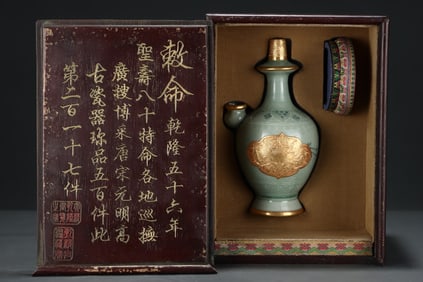 敕命
乾隆五十六年
聖壽八十特命各地巡撫
廣搜博采唐宋元明高
古瓷器珎品五百件此
第二百一十七件